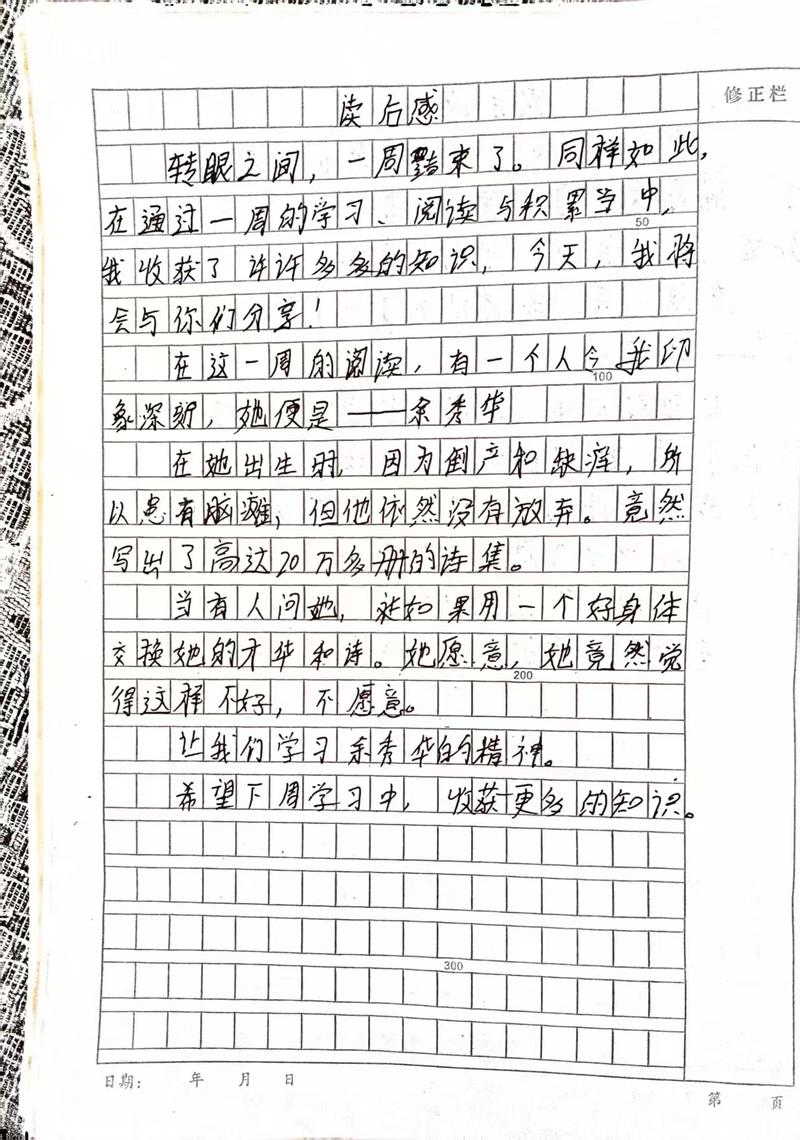 读后感
修正栏
转眼之间，一周结束了。同样如此，
在通过一周的学习、阅读与积累当中，
50
我收获了许许多多的知识，今天，我将
会与你们分享！
在这一周的阅读，有一个人令我印
100
象深刻，她便是——余秀华
在她出生时，因为倒产和缺痒，所
以患有脑瘫，但他依然没有放弃。竟然
写出了高达20万多册的诗集。
当有人问她，如果用一个好身体
交换她的才华和诗。她愿意，她竟然觉
200
得这样不好，不愿意。
让我们学习余秀华的精神。
希望下周学习中，收获更多的知识。
300
日期： 年 月 日
第 页